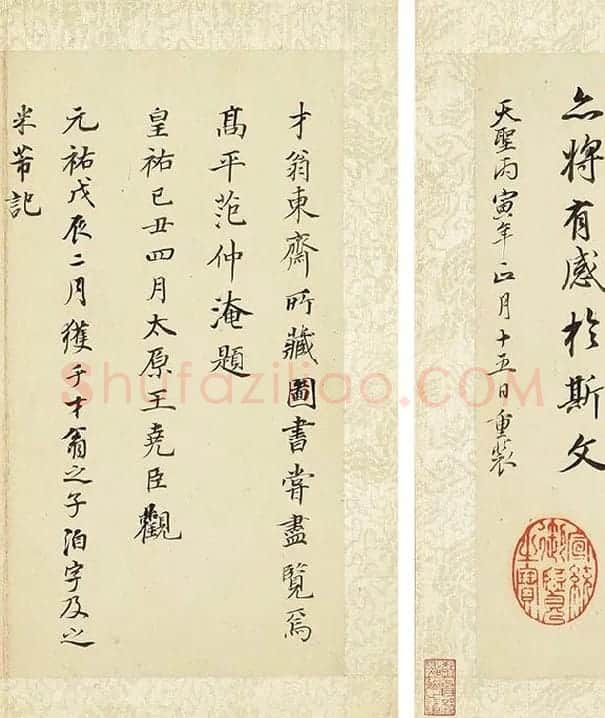 亦將有感於斯文
天聖丙寅年正月十五日重裝
宣統御覽之寶
才翁東齋所藏圖書嘗盡覽焉
髙平范仲淹題
皇祐己丑四月太原王堯臣觀
元祐戊辰二月獲于才翁之子洎字及之
米芾記
Shufaziliao.COM